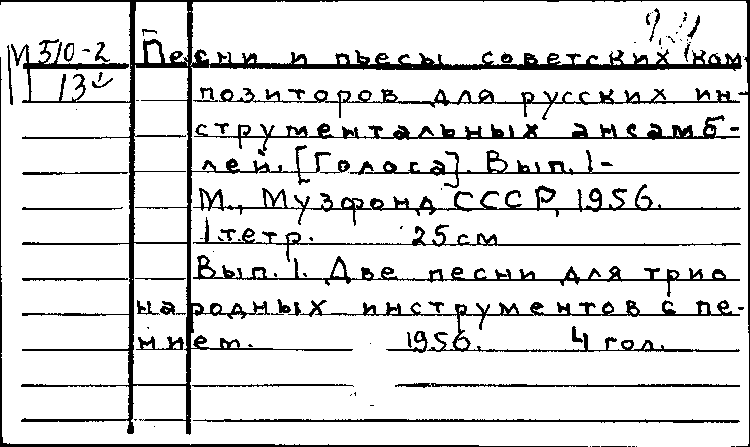 М 510-2
13
Песни и пьесы советских ком-
позиторов для русских ин-
струментальных ансамб-
лей. [Голоса]. Вып. 1-
М., Музфонд СССР, 1956.
1 тетр. 25 см
Вып. 1. Две песни для трио
народных инструментов с пе-
нием. 1956. 4 гол.